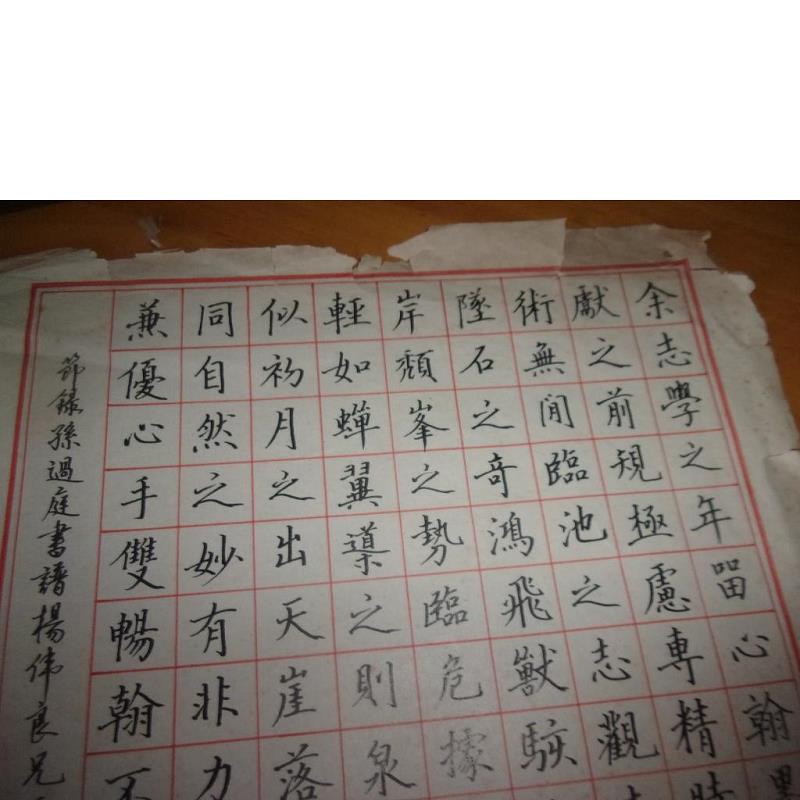 余志學之年留心翰
獻之前規極慮專精時
術無閒臨池之志觀
墜石之奇鴻飛獸駭
岸頹峯之勢臨危據
輕如蟬翼導之則泉
似初月之出天崖落
同自然之妙有非力
兼優心手雙暢翰不
節錄孫過庭書譜楊偉良兄